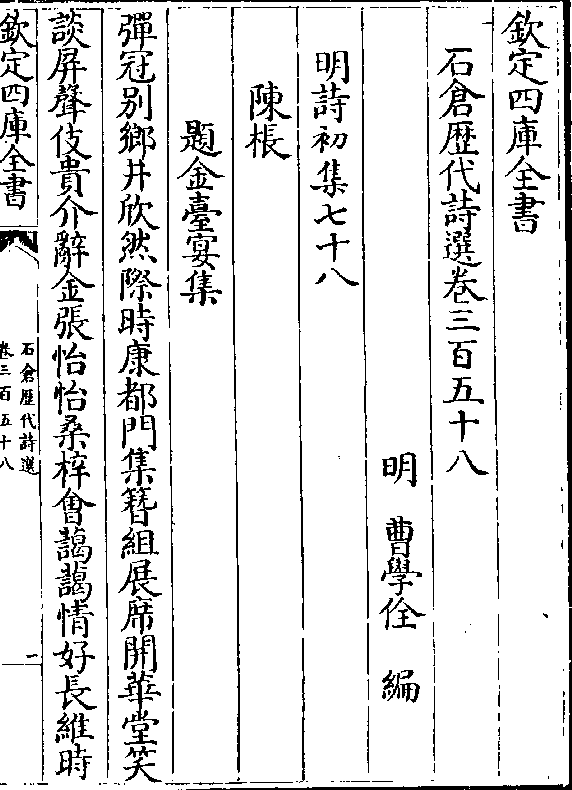 欽定四庫全書
石倉歴代詩選卷三百五十八
明　曹學佺　編
明詩初集七十八
陳棖
題金臺宴集
彈冠别鄉井欣然際時康都門集簪組展席開華堂笑
談屏聲伎貴介辭金張怡怡桑梓會藹藹情好長維時
欽定四庫全書
石倉歴代詩選
卷三百五十八
一